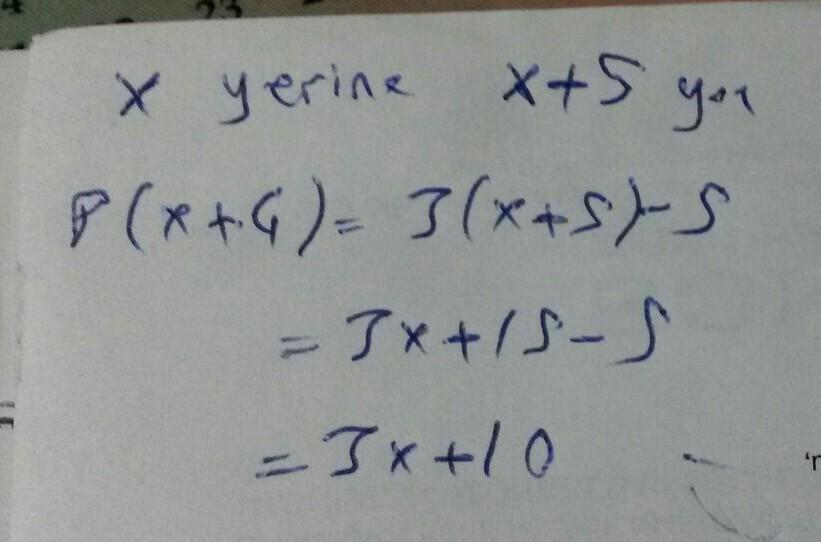 23
x yerine x+5 yaz
P(x+4)= 3(x+5)-5
= 3x+15-5
= 3x+10